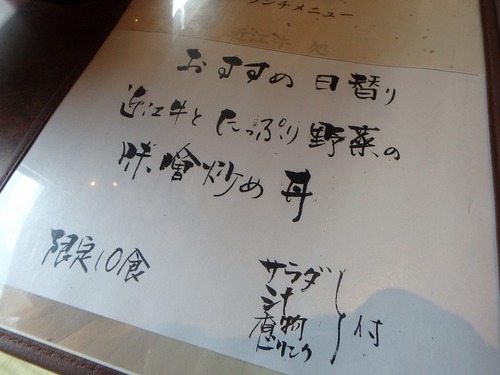 ランチメニュー
近江牛 処
おすすめ 日替り
近江牛と たっぷり 野菜の
味噌炒め 丼
限定10食
サラダ
汁
煮物
ドリンク
付